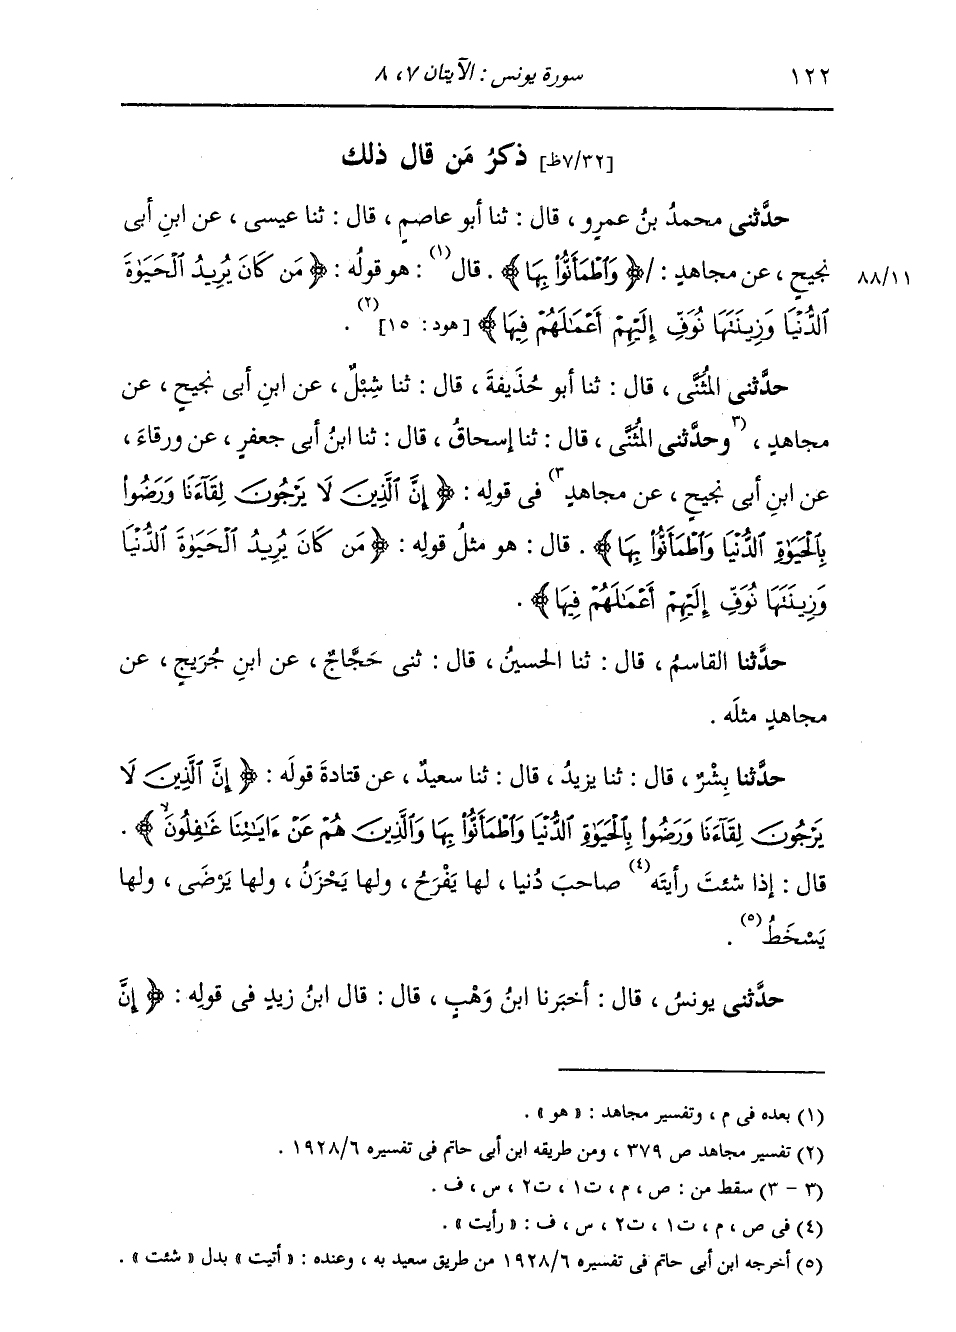 ١٢٢ سورة يونس : الآيتان ٧، ٨
[٧/٣٢ظ] ذكرُ مَن قال ذلك
حدَّثنى محمدُ بنُ عمرٍو ، قال : ثنا أبو عاصمٍ ، قال : ثنا عيسى ، عن ابنِ أبى
١١/٨٨ نجيحٍ ، عن مجاهدٍ : /﴿ وَٱطْمَأَنُّوا۟ بِهَا ﴾ . قال(١) : هو قولُه : ﴿ مَن كَانَ يُرِيدُ ٱلْحَيَوٰةَ
ٱلدُّنْيَا وَزِينَتَهَا نُوَفِّ إِلَيْهِمْ أَعْمَـٰلَهُمْ فِيهَا ﴾ [هود: ١٥](٢) .
حدَّثنى المُثَنَّى ، قال : ثنا أبو حُذَيفةَ ، قال : ثنا شِبْلٌ ، عن ابنِ أبى نجيحٍ ، عن
مجاهدٍ ، (٣وحدَّثنى المُثَنَّى ، قال : ثنا إسحاقُ ، قال : ثنا ابنُ أبى جعفرٍ ، عن ورقاءَ ،
عن ابنِ أبى نجيحٍ ، عن مجاهدٍ٣) فى قولِه : ﴿ إِنَّ ٱلَّذِينَ لَا يَرْجُونَ لِقَآءَنَا وَرَضُوا۟
بِٱلْحَيَوٰةِ ٱلدُّنْيَا وَٱطْمَأَنُّوا۟ بِهَا ﴾ . قال : هو مثلُ قولِه : ﴿ مَن كَانَ يُرِيدُ ٱلْحَيَوٰةَ ٱلدُّنْيَا
وَزِينَتَهَا نُوَفِّ إِلَيْهِمْ أَعْمَـٰلَهُمْ فِيهَا ﴾ .
حدَّثنا القاسمُ ، قال : ثنا الحسينُ ، قال : ثنى حَجَّاجٌ ، عن ابنِ جُرَيجٍ ، عن
مجاهدٍ مثلَه .
حدَّثنا بِشْرٌ ، قال : ثنا يزيدُ ، قال : ثنا سعيدٌ ، عن قتادةَ قولَه : ﴿ إِنَّ ٱلَّذِينَ لَا
يَرْجُونَ لِقَآءَنَا وَرَضُوا۟ بِٱلْحَيَوٰةِ ٱلدُّنْيَا وَٱطْمَأَنُّوا۟ بِهَا وَٱلَّذِينَ هُمْ عَنْ ءَايَـٰتِنَا غَـٰفِلُونَۙ ﴾ .
قال : إذا شئتَ رأيتَه(٤) صاحبَ دُنيا ، لها يَفْرَحُ ، ولها يَحْزَنُ ، ولها يَرْضَى ، ولها
يَسْخَطُ(٥) .
حدَّثنى يونسُ ، قال : أخبَرنا ابنُ وَهْبٍ ، قال : قال ابنُ زيدٍ فى قولِه : ﴿ إِنَّ
(١) بعده فى م ، وتفسير مجاهد : « هو » .
(٢) تفسير مجاهد ص ٣٧٩ ، ومن طريقه ابن أبى حاتم فى تفسيره ١٩٢٨/٦ .
(٣ - ٣) سقط من : ص ، م ، ت١ ، ت٢ ، س ، ف .
(٤) فى ص ، م ، ت١ ، ت٢ ، س ، ف : « رأيت » .
(٥) أخرجه ابن أبى حاتم فى تفسيره ١٩٢٨/٦ من طريق سعيد به ، وعنده : « أتيت » بدل « شئت » .